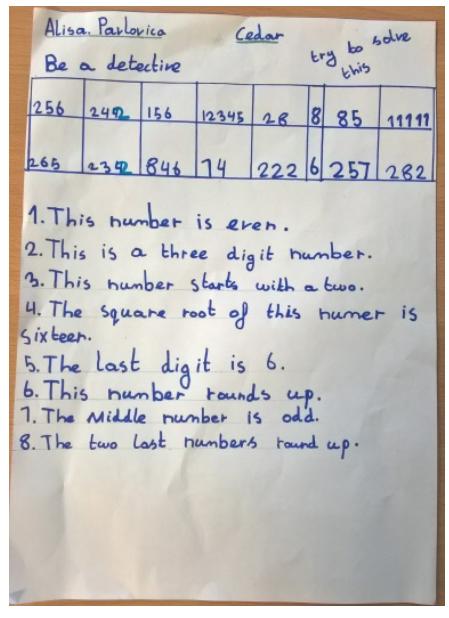 Alisa. Pavlovica Cedar try to solve
this
Be a detective
256 2492 156 12345 28 8 85 11111
265 2392 846 74 222 6 257 282
1. This number is even.
2. This is a three digit number.
3. This number starts with a two.
4. The square root of this numer is
sixteen.
5. The last digit is 6.
6. This number rounds up.
7. The Middle number is odd.
8. The two last numbers round up.